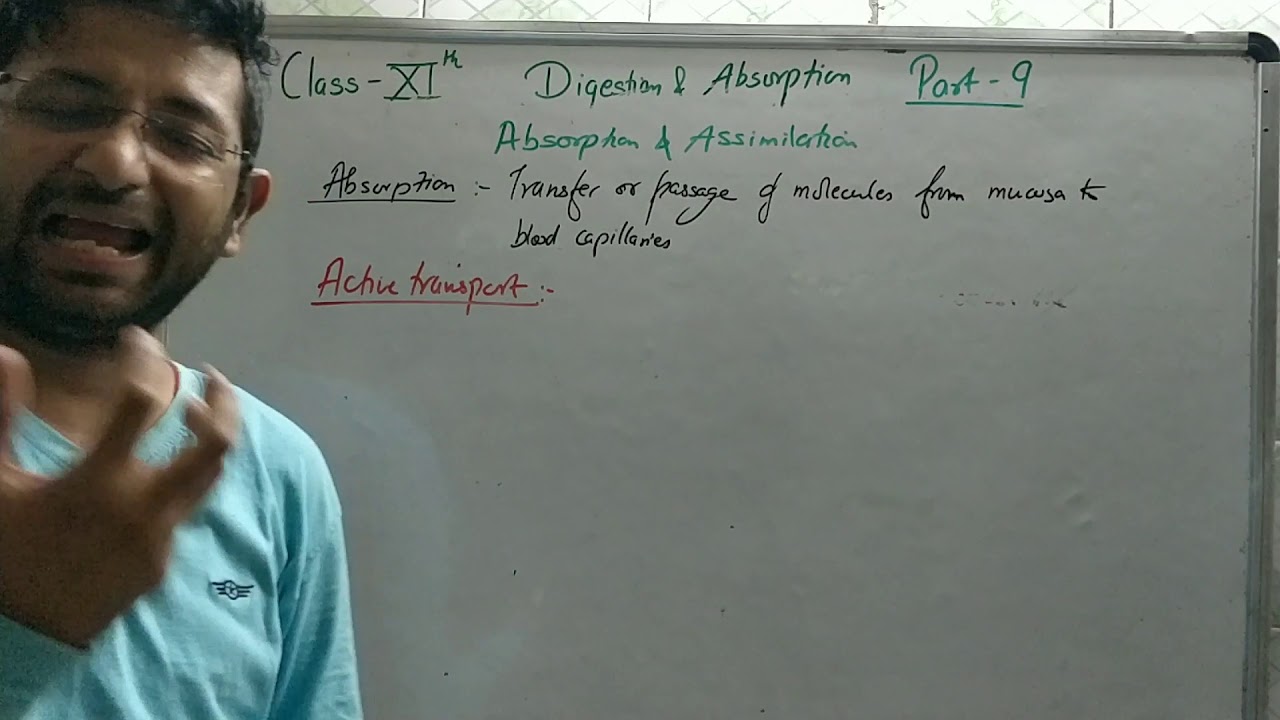 Class-XIth Digestion & Absorption Part-9
Absorption & Assimilation
Absorption :- Transfer or passage of molecules from mucosa to
blood capillaries
Active transport :-